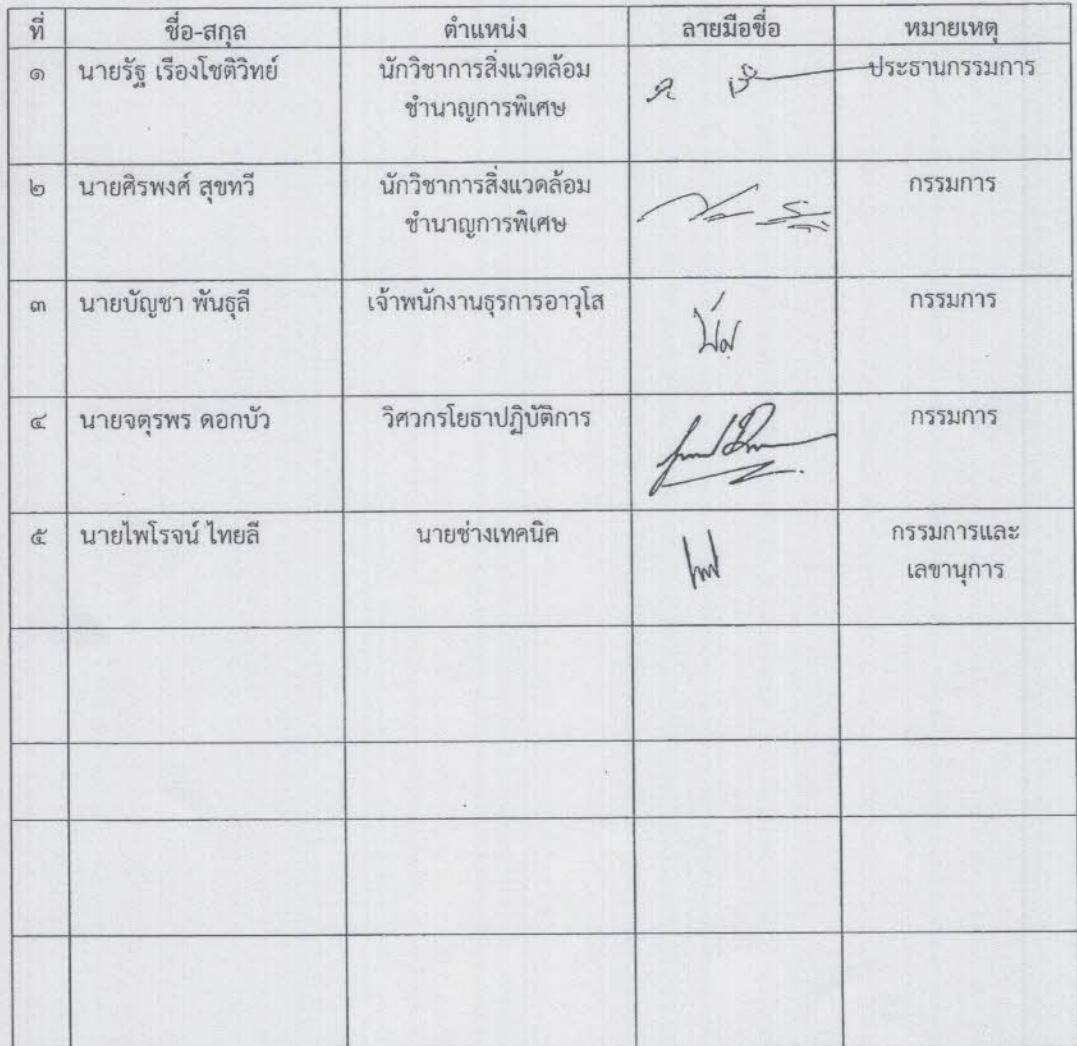 ที่ ชื่อ-สกุล ตำแหน่ง ลายมือชื่อ หมายเหตุ
๑ นายรัฐ เรืองโชติวิทย์ นักวิชาการสิ่งแวดล้อม ประธานกรรมการ
ชำนาญการพิเศษ
๒ นายศิรพงศ์ สุขทวี นักวิชาการสิ่งแวดล้อม กรรมการ
ชำนาญการพิเศษ
๓ นายบัญชา พันธุลี เจ้าพนักงานธุรการอาวุโส กรรมการ
๔ นายจตุรพร ดอกบัว วิศวกรโยธาปฏิบัติการ กรรมการ
๕ นายไพโรจน์ ไทยลี นายช่างเทคนิค กรรมการและ
เลขานุการ